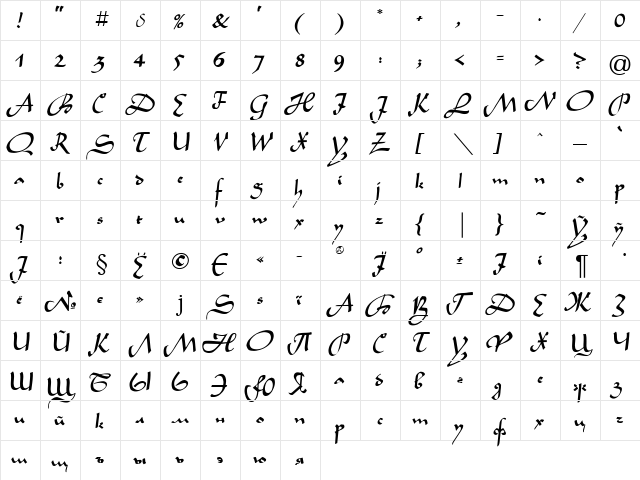 ! " # $ % & ' ( ) * + , - . / 0
1 2 3 4 5 6 7 8 9 : ; < = > ? @
A B C D E F G H I J K L M N O P
Q R S T U V W X Y Z [ \ ] ^ _ `
a b c d e f g h i j k l m n o p
q r s t u v w x y z { | } ~ Ў ў
J : § Ё © Є « - ® Ї ° ± І і ¶ ·
ё № є » j Ѕ ѕ ї А Б В Г Д Е Ж З
И Й К Л М Н О П Р С Т У Ф Х Ц Ч
Ш Щ Ъ Ы Ь Э Ю Я а б в г д е ж з
и й к л м н о п р с т у ф х ц ч
ш щ ъ ы ь э ю я